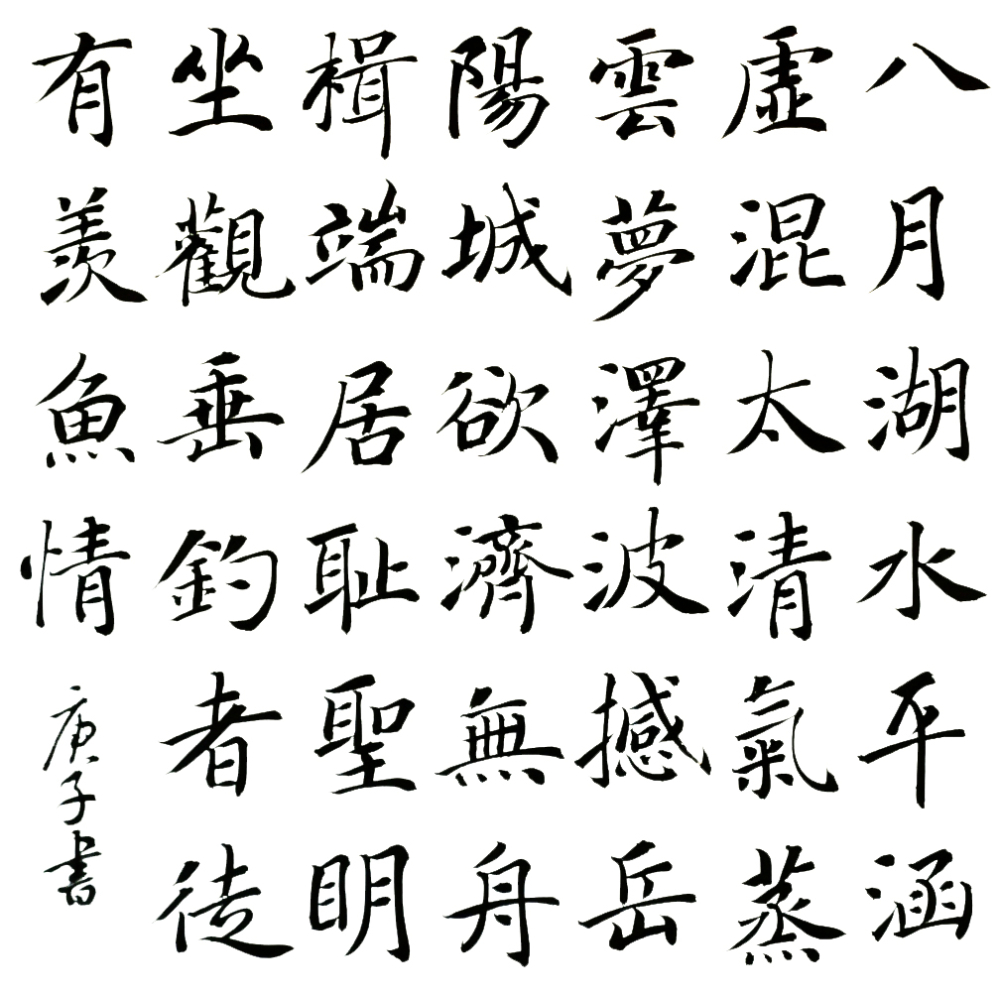 八月湖水平涵
虛混太清氣蒸
雲夢澤波撼岳
陽城欲濟無舟
楫端居恥聖明
坐觀垂釣者徒
有羨魚情
庚子書